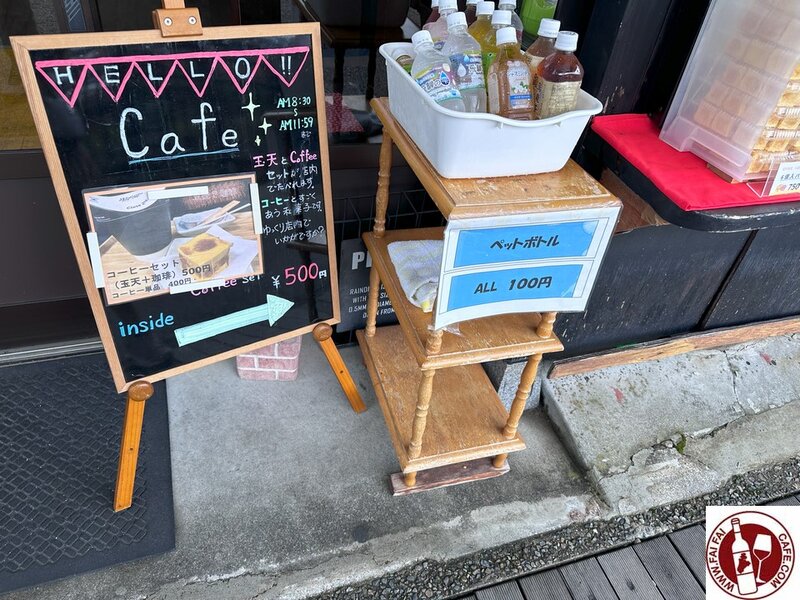 HELLO!!
Cafe
AM8:30
AM11:59
玉天とCoffee
セットが店内
でたべれます。
コーヒーとすごく
あう和菓子っス。
ゆっくり店内で
いかがですか?
コーヒーセット
(玉天+珈琲) 500円
コーヒー単品 400円
Coffee Set
¥500円
inside
ペットボトル
ALL 100円
WWW.FAI FAI CAFE.COM